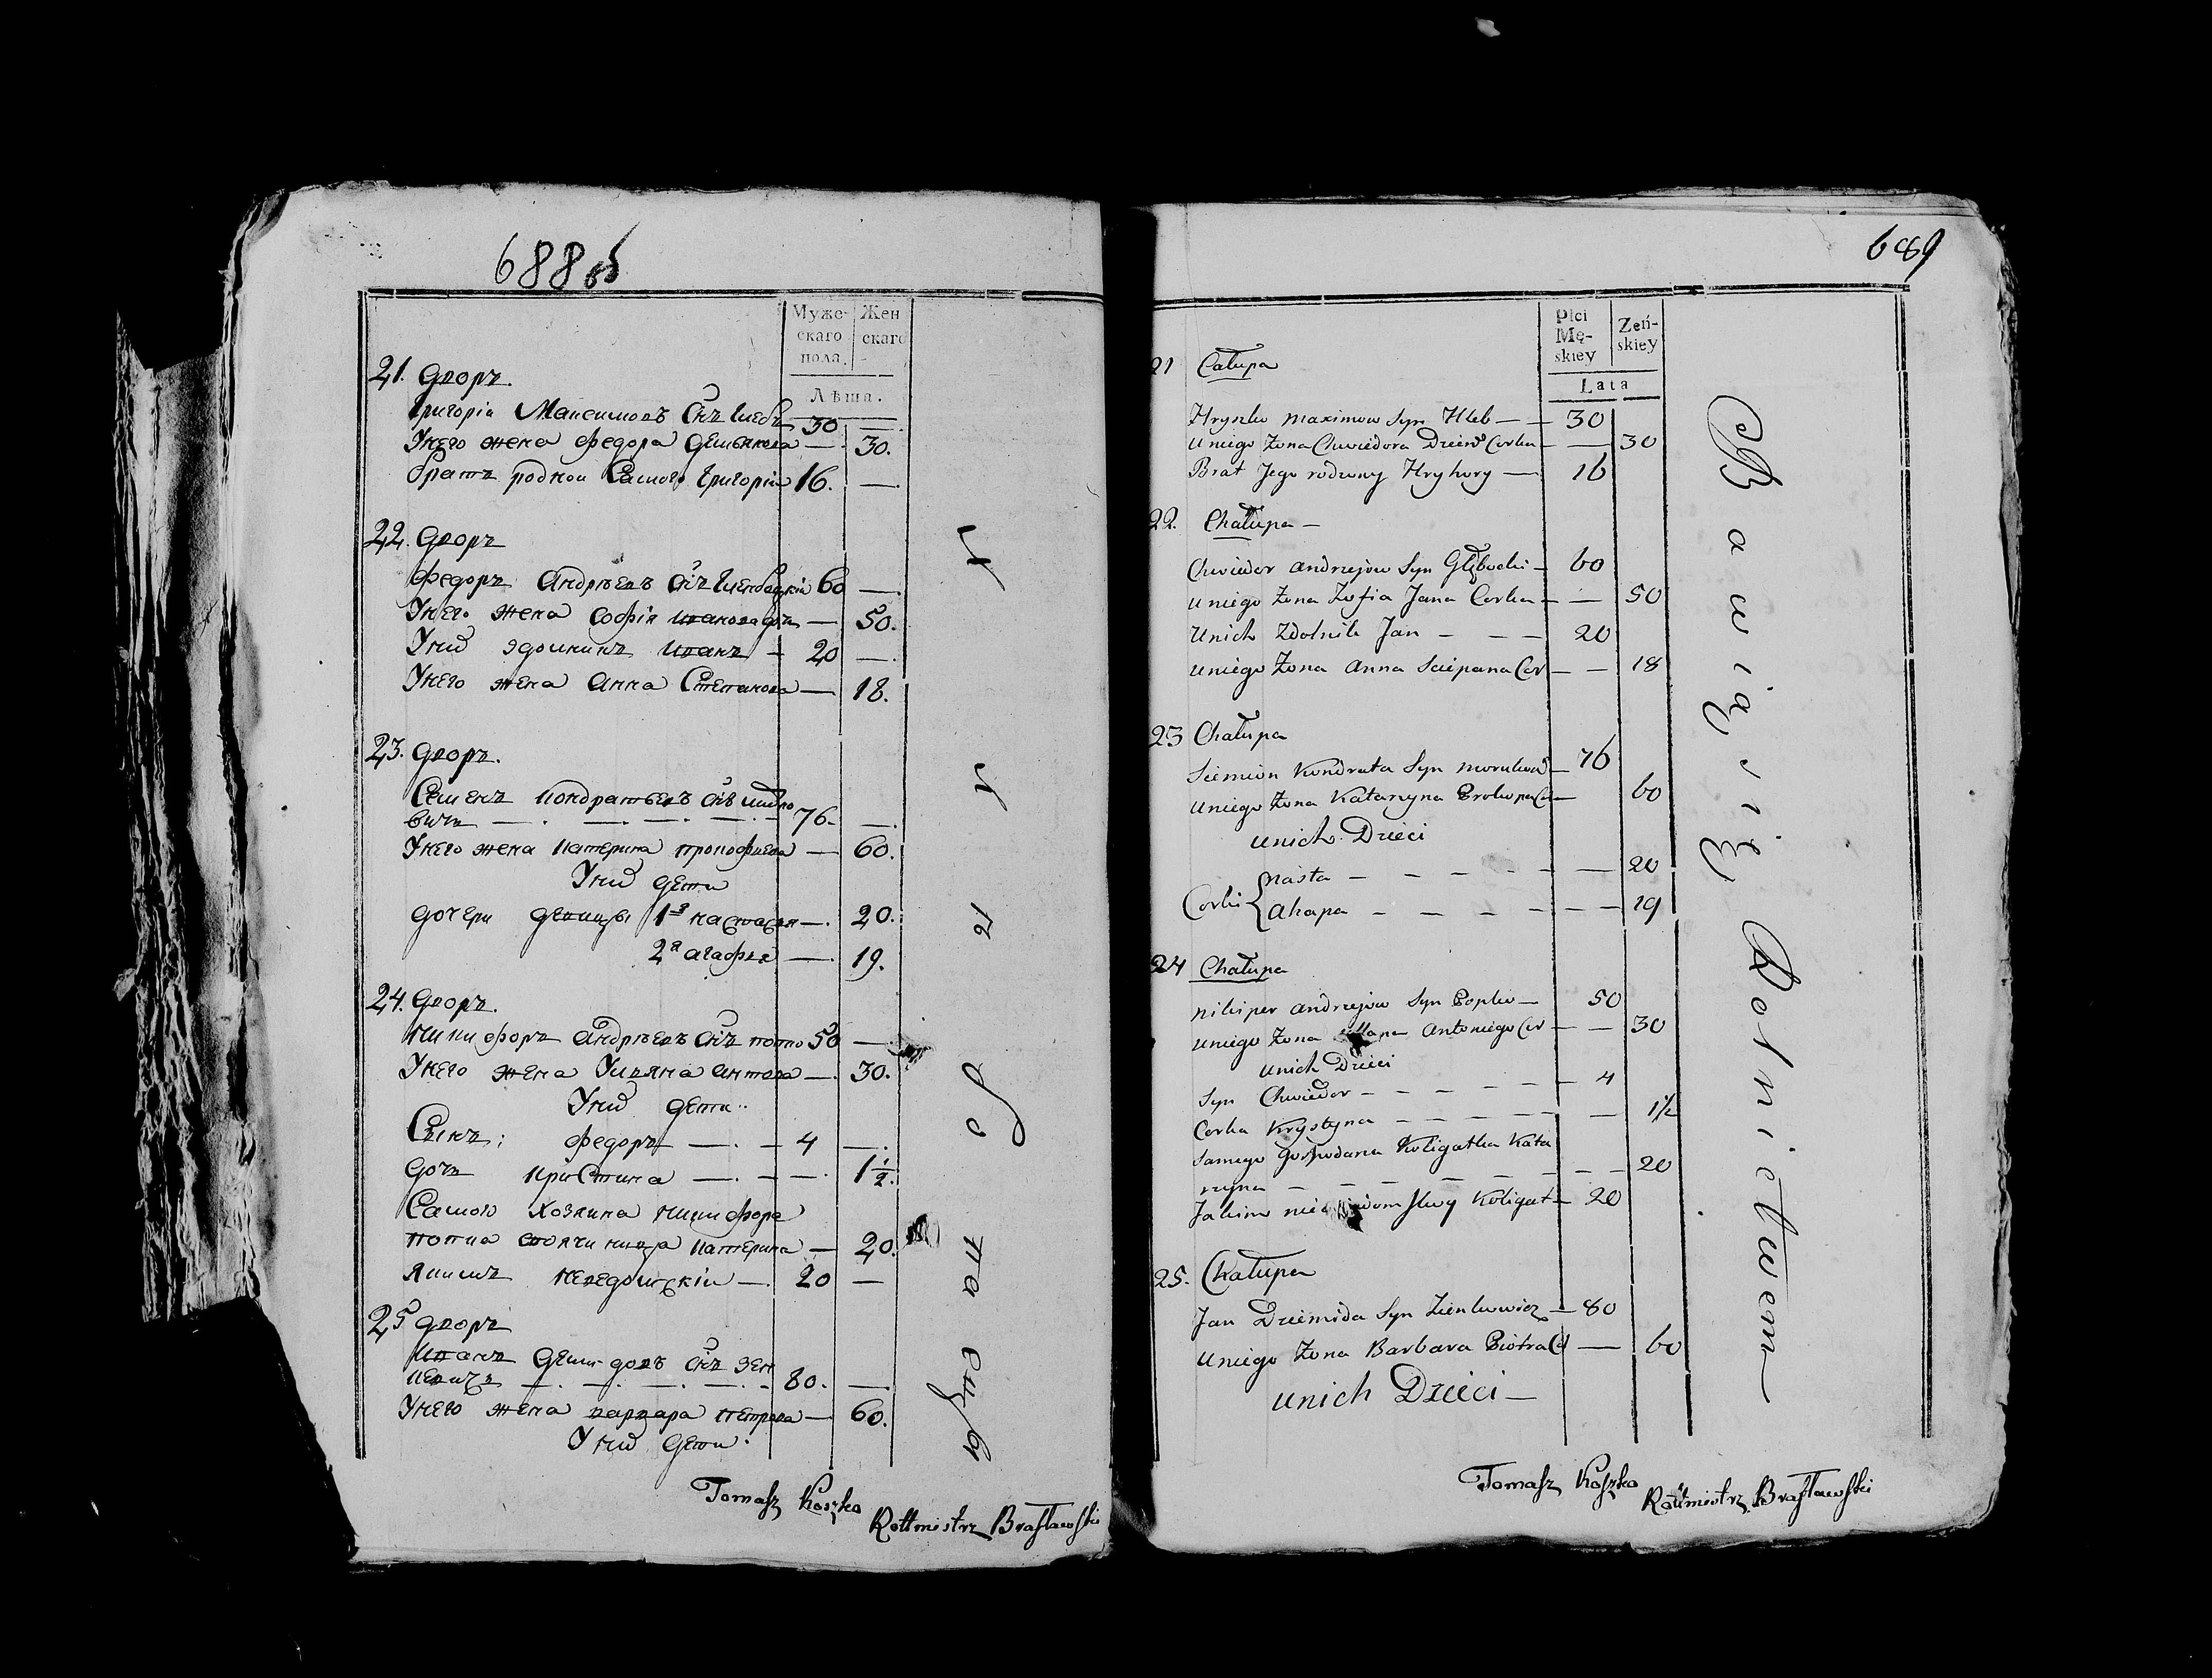 688 об
Муже-
скаго
пола.
Жен
скаго
Лѣта.
21. Дворъ.
Григорій Максимовъ Снъ Глебъ 30 —
У него жена Федора Демьянова — 30.
братъ родной Самого Григорій 16. —
22. Дворъ
Федоръ Андрѣевъ Снъ 60 —
У него жена Софія Иванова дочь — 50.
У них здолникъ Иванъ — 20 —
У него жена Анна Степанова — 18.
23. Дворъ.
Семенъ Кондратьевъ Снъ
вичъ — 76. —
У него жена Катерина Прокофиева — 60.
У них дети
дочери девицы 1я настасея — 20.
2я агафия — 19.
24. Дворъ.
Никифоръ Андрѣевъ Снъ попко 50 —
У него жена Ульяна Антова — 30.
У них дети
Сынъ: Федоръ — 4 —
дочь Кристина — 1 1/2.
Самого Хозяина Никифора
попка Катерина — 20.
Якимъ — 20 —
25 дворъ
Иванъ Снъ Зен
кевичъ — 80. —
У него жена варвара Петрова — 60.
У них дети.
Tomasz Koszko
Rottmistrz Brasławski
689
Płci
Mę-
skiey
Zeń-
skiey
Lata
21 Całupa
Hrynko maximow Syn Hleb — 30
uniego Zona Chwiedora Corka — 30
Brat Jego rodzony Hryhory — 16
22. Chałupa —
Chwiedor andrzejow Syn Głębocki — 60
uniego Zona Zofia Jana Corka — 50
unich Zdolnik Jan — 20
uniego Zona Anna Sciepana Cor — 18
23 Chałupa
Siemion Kondrata Syn — 76
uniego Zona Katarzyna — 60
unich Dzieci
Corki { nasta — 20
ahapa — 19
24 Chałupa
nikiper andrzejow Syn Popko — 50
uniego Zona Antoniego Cor — 30
unich Dzieci
Syn Chwiedor — 4
Corka Krystyna — 1 1/2
Samego Gospodarza Koligatka Kata
rzyna — 20
Jakim Koligat — 20
25. Chałupa
Jan Dziemida Syn Zienkowicz — 80
uniego Zona Barbara Piotra C — 60
unich Dzieci —
Bawią się Rolnictwem
Tomasz Koszko
Rottmistrz Brasławski